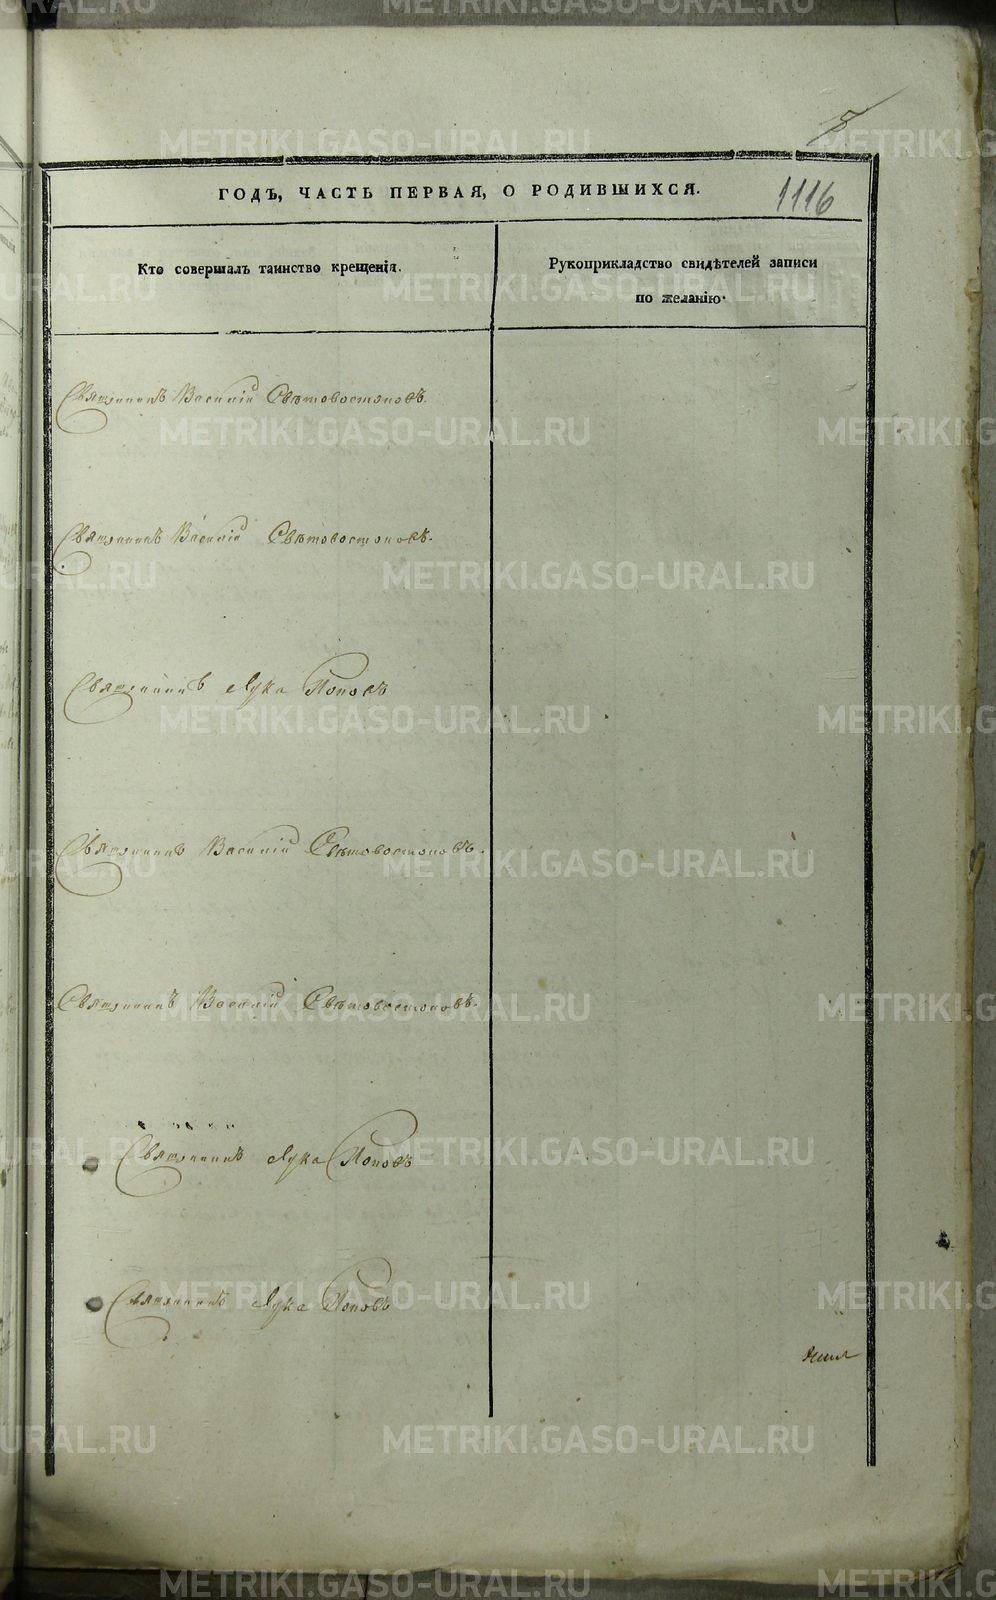 5
ГОДЪ, ЧАСТЬ ПЕРВАЯ, О РОДИВШИХСЯ.
1116
Кто совершалъ таинство крещенія.
Рукоприкладство свидѣтелей записи
по желанію.
Священникъ Василій Свѣтовостоковъ.
Священникъ Василій Свѣтовостоковъ.
Священникъ Лука Поповъ
Священникъ Василій Свѣтовостоковъ.
Священникъ Василій Свѣтовостоковъ.
Священникъ Лука Поповъ
Священникъ Лука Поповъ
METRIKI.GASO-URAL.RU